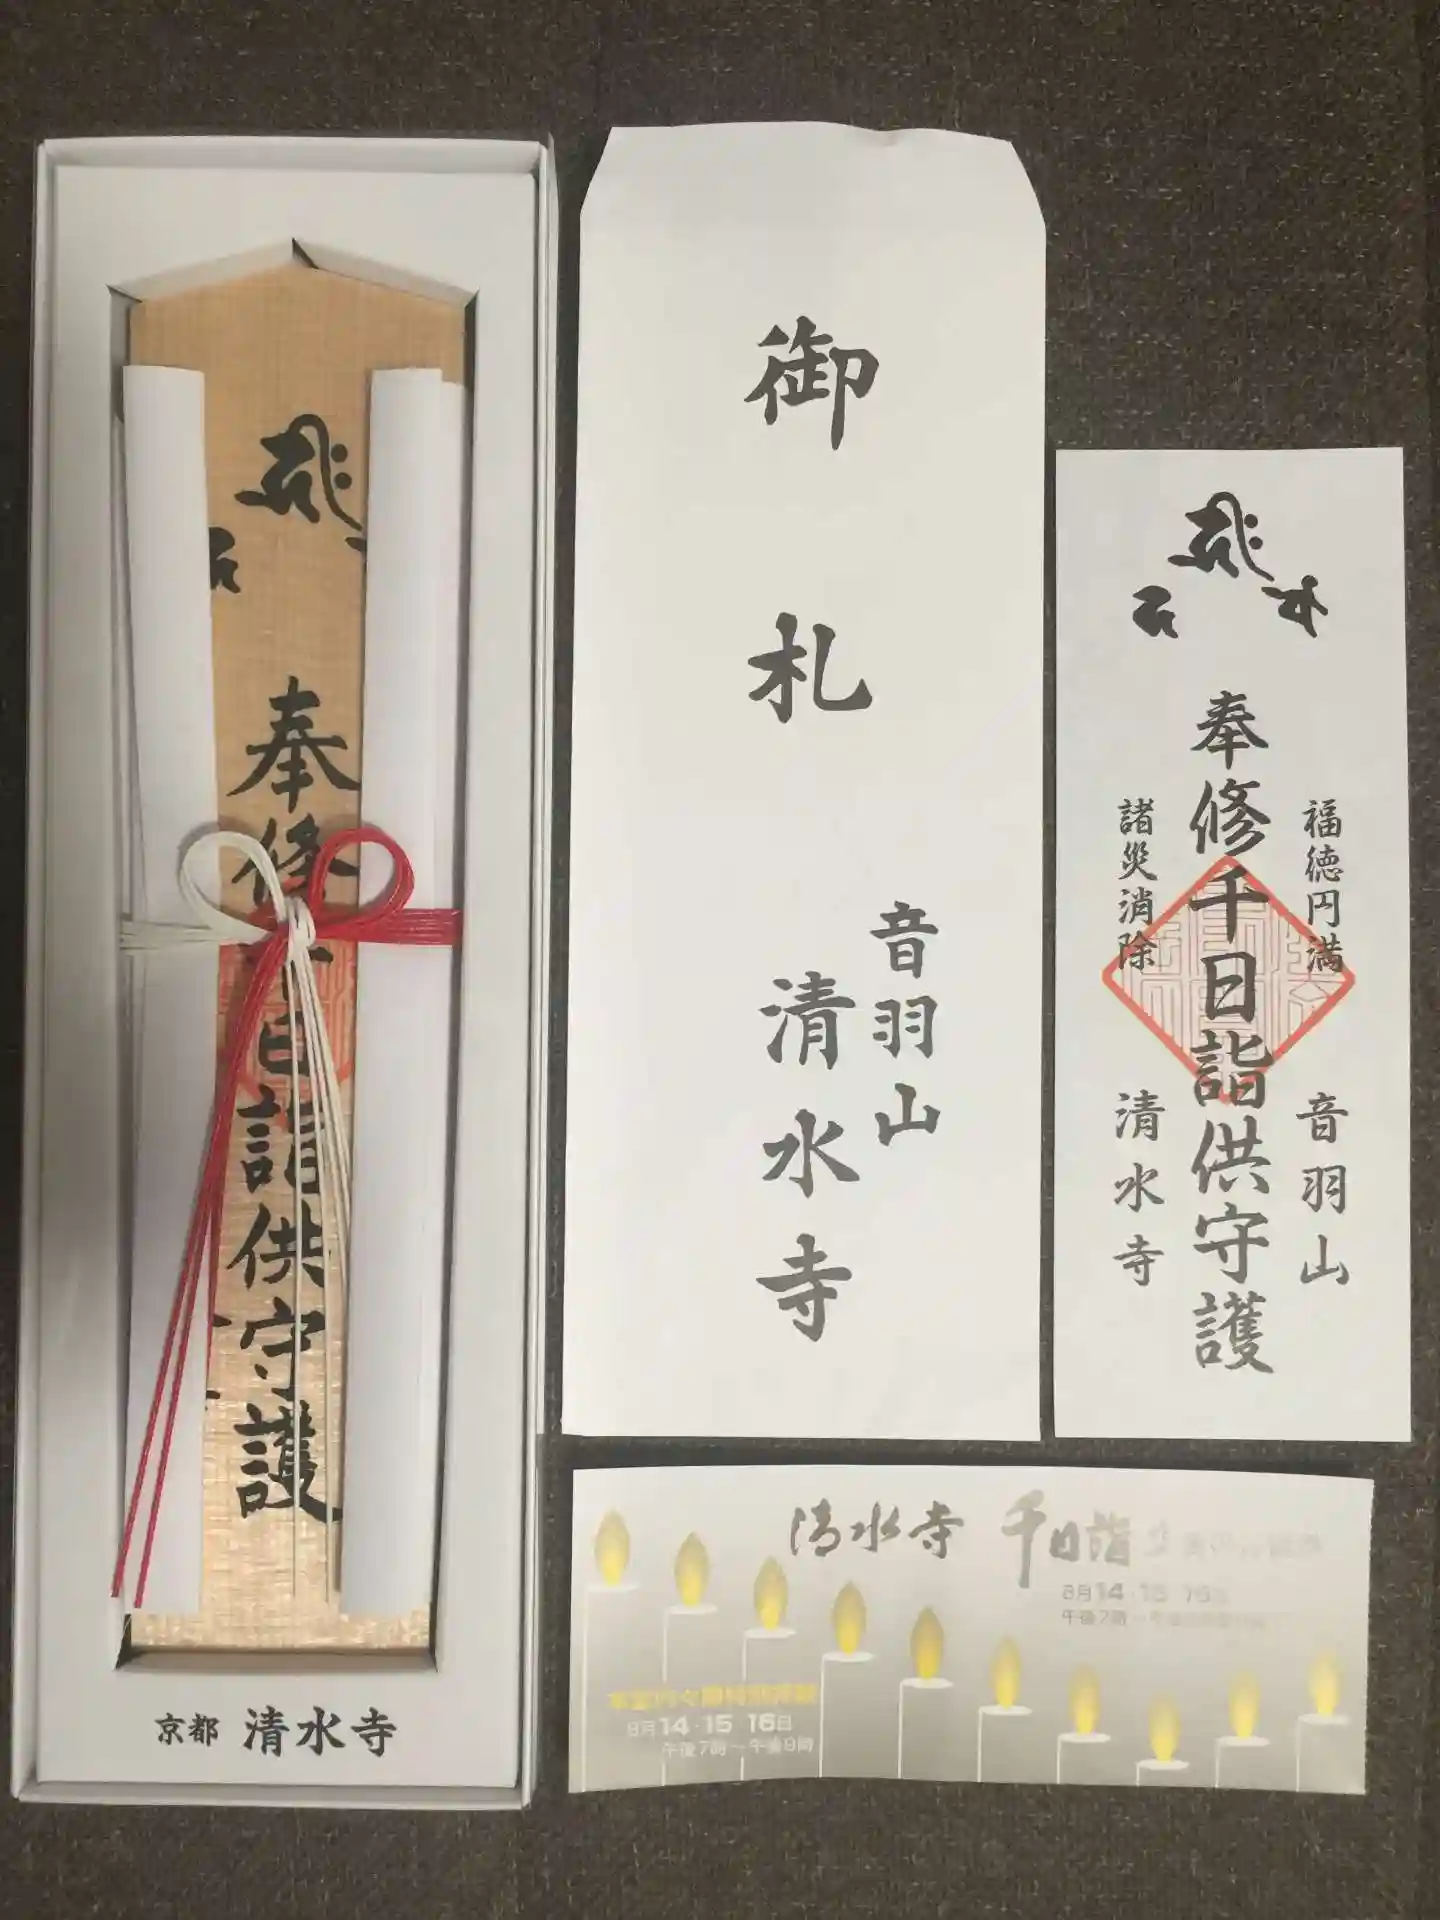 奉修千日詣供守護
京都 清水寺
御札
音羽山
清水寺
福徳円満
奉修千日詣供守護
諸災消除
音羽山
清水寺
清水寺 千日詣り
8月14・15 16日
午後7時〜
8月14・15 16日
午後7時〜午後9時